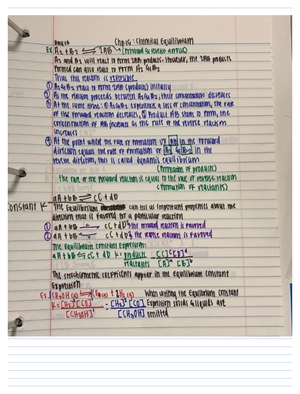 Chp 15: Chemical Equilibrium
Ex. A2 + B2 ⇌ 2AB (forward & reverse arrows)
A2 and B2 will react to form 2AB products. However, the 2AB products
formed can also react to form A2 & B2
Thus this reaction is reversible
① A2 & B2 react to form 2AB (products) initially
② As the reaction proceeds between A2 & B2, their concentration decreases
③ At the same time: ① A2 & B2 experience a loss of concentration, the rate
of the forward reaction decreases, ② Product AB starts to form, the
concentration of AB increases so the rate of the reverse reaction
increases
④ At the point where the rate of formation of AB in the forward
direction equals the rate of formation of A2 & B2 in the
reverse direction, this is called dynamic equilibrium
(formation of products)
The rate of the forward reaction is equal to the rate of reverse reaction
(formation of reactants)
Constant K
aA + bB ⇌ cC + dD
The Equilibrium can tell us important properties about the
direction that is favored for a particular reaction
① aA + bB cC + dD the forward reaction is favored
② aA + bB cC + dD the reverse reaction is favored
The Equilibrium Constant Expression:
aA + bB ⇌ cC + dD K = products [C]^c [D]^d
reactants [A]^a [B]^b
The stoichiometric coefficients appear in the equilibrium constant
Expression
Ex. CH3OH (g) ⇌ CO (g) + 2H2 (g) When writing the Equilibrium Constant
K = [H2]^2 [CO] = [H2]^2 [CO] Expression solids & liquids are
[CH3OH]^1 [CH3OH] omitted